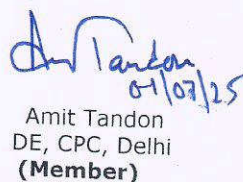 Amit Tandon
01/07/25
Amit Tandon
DE, CPC, Delhi
(Member)